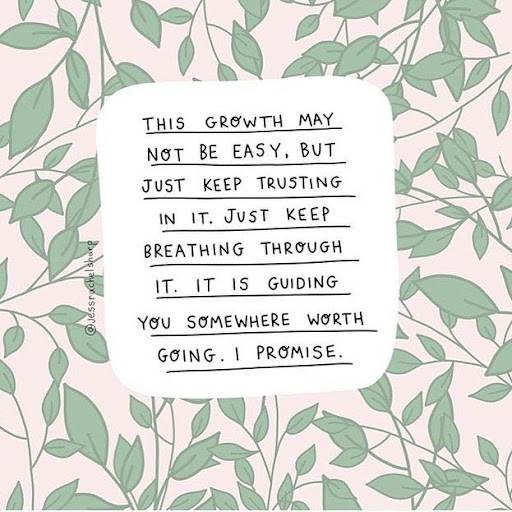 THIS GROWTH MAY
NOT BE EASY, BUT
JUST KEEP TRUSTING
IN IT. JUST KEEP
BREATHING THROUGH
IT. IT IS GUIDING
YOU SOMEWHERE WORTH
GOING. I PROMISE.
@Jessrachelsharp